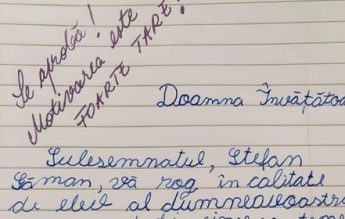 Se aprobă!
Motivarea este
FOARTE TARE!
Doamna Învățătoa
Sulesemnatul, Ștefan
Găman, vă rog în calitate
de elev al dumneavoastră